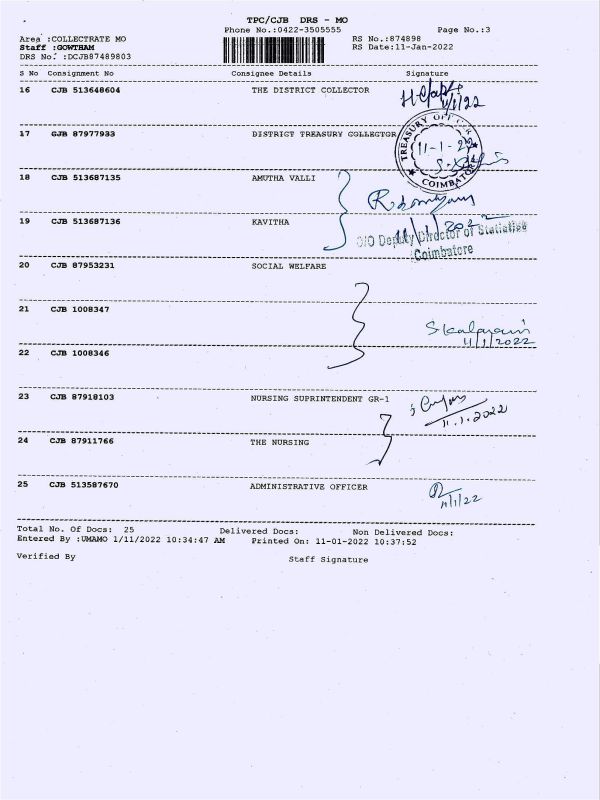 TPC/CJB DRS - MO
Phone No.:0422-3505555 Page No.:3
Area :COLLECTRATE MO RS No.:874898
Staff :GOWTHAM RS Date:11-Jan-2022
DRS No. :DCJB87489803
S No Consignment No Consignee Details Signature
16 CJB 513648604 THE DISTRICT COLLECTOR
11/1/22
17 GJB 87977933 DISTRICT TREASURY COLLECTOR
TREASURY
11-1-22
COIMBATORE
18 CJB 513687135 AMUTHA VALLI
19 CJB 513687136 KAVITHA
11/1/2022
O/O Deputy Director of Statistics
Coimbatore
20 CJB 87953231 SOCIAL WELFARE
21 CJB 1008347
S kalparani
11/1/2022
22 CJB 1008346
23 CJB 87918103 NURSING SUPRINTENDENT GR-1
11.1.2022
24 CJB 87911766 THE NURSING
25 CJB 513587670 ADMINISTRATIVE OFFICER
11/1/22
Total No. Of Docs: 25 Delivered Docs: Non Delivered Docs:
Entered By :UMAMO 1/11/2022 10:34:47 AM Printed On: 11-01-2022 10:37:52
Verified By Staff Signature